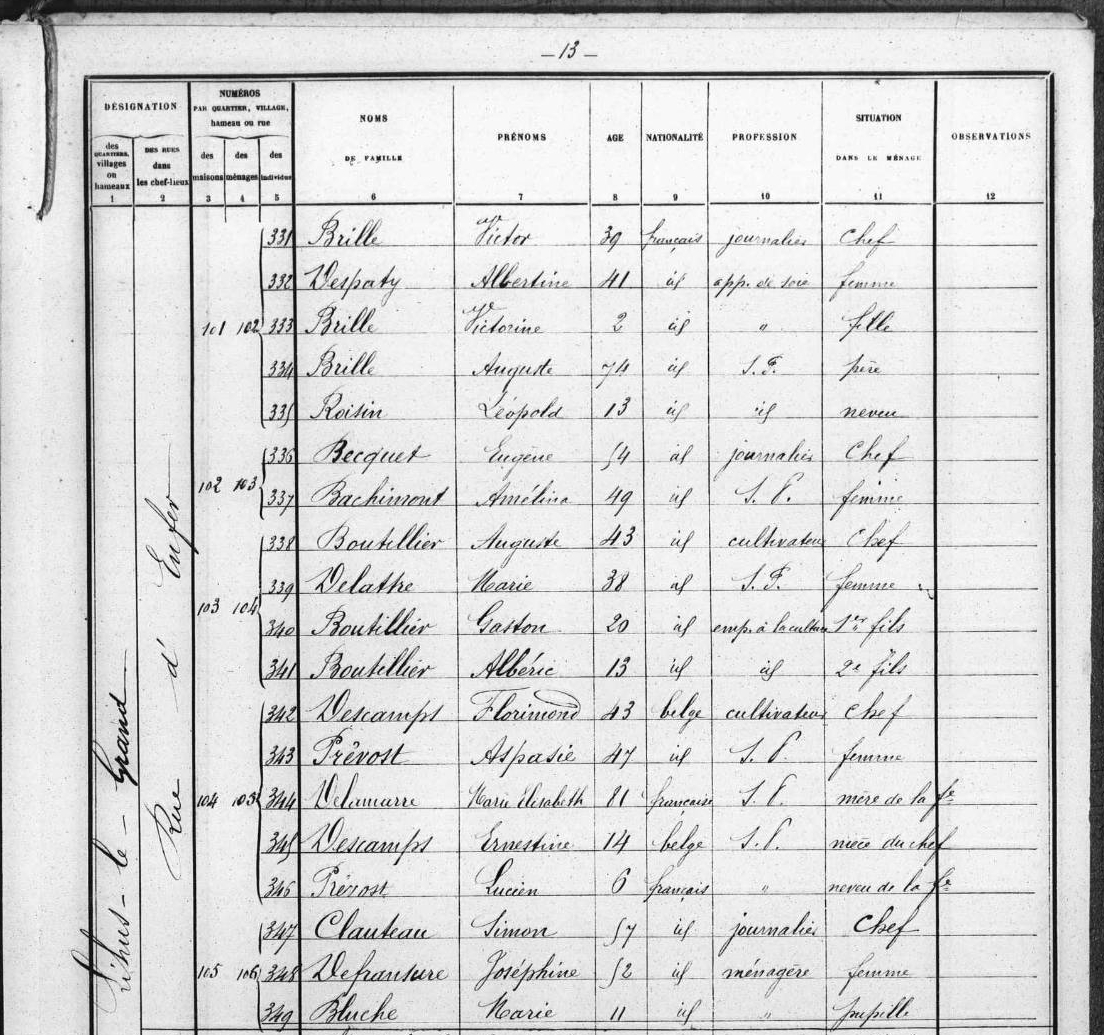 — 13 —
DÉSIGNATION
NUMÉROS
PAR QUARTIER, VILLAGE,
hameau ou rue
NOMS
DE FAMILLE
PRÉNOMS
AGE
NATIONALITÉ
PROFESSION
SITUATION
DANS LE MÉNAGE
OBSERVATIONS
des QUARTIERS, villages ou hameaux
DES RUES dans les chef-lieux
des maisons
des ménages
des individus
1 2 3 4 5 6 7 8 9 10 11 12
Lihus-le-Grand
Rue d'Enfer
331 Brille Victor 39 français journalier Chef
332 Despaty Albertine 41 id app. de soie femme
101 102 333 Brille Victorine 2 id " fille
334 Brille Auguste 74 id S.P. père
335 Roisin Léopold 13 id id neveu
336 Becquet Eugène 54 id journalier Chef
102 103 337 Bachimont Amélina 49 id S.P. femme
338 Boutillier Auguste 43 id cultivateur Chef
339 Delattre Marie 38 id S.P. femme
103 104 340 Boutillier Gaston 20 id emp. à la culture 1er fils
341 Boutillier Albéric 13 id id 2e fils
342 Descamps Florimond 43 belge cultivateur chef
343 Prévost Aspasie 47 id S.P. femme
104 105 344 Delamarre Marie Elisabeth 81 française S.P. mère de la fe
345 Descamps Ernestine 14 belge S.P. nièce du chef
346 Prévost Lucien 6 français " neveu de la fe
347 Clauteau Simon 57 id journalier Chef
105 106 348 Defransure Joséphine 52 id ménagère femme
349 Bluche Marie 11 id " pupille